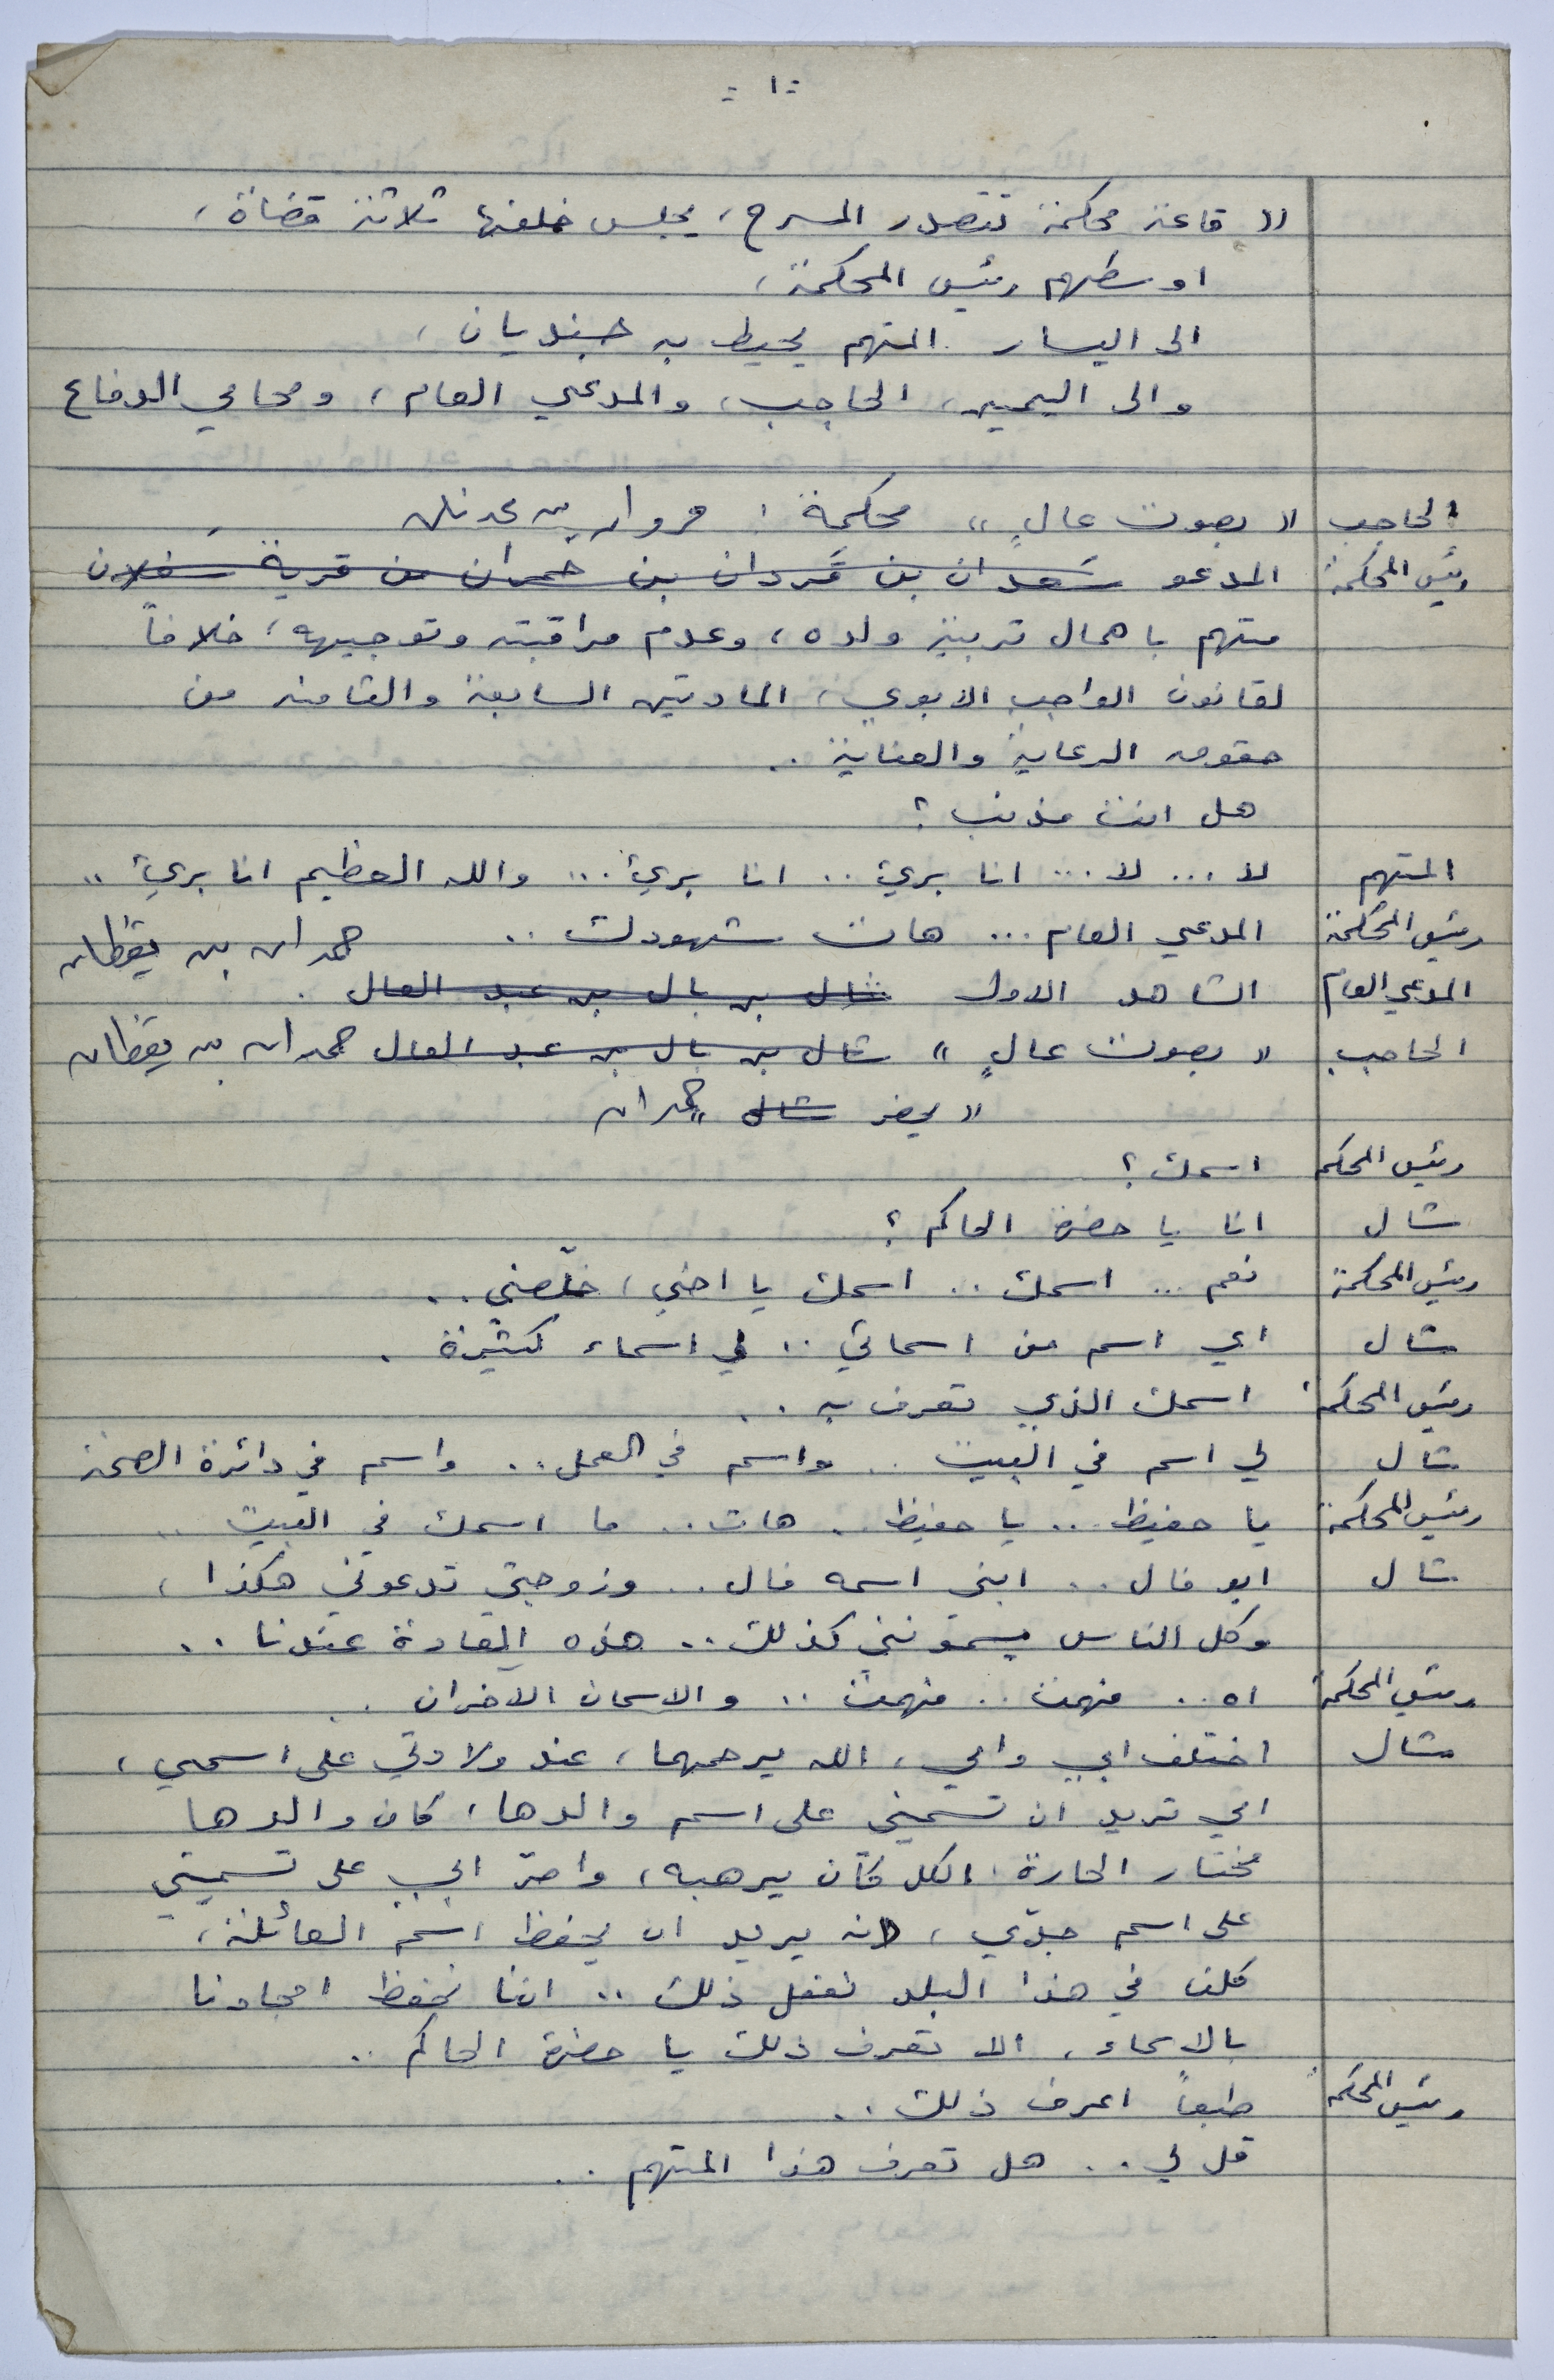 : ١ :
(( قاعة محكمة تتصدر المسرح، يجلس خلفها ثلاثة قضاة،
اوسطهم رئيس المحكمة،
الى اليسار المتهم يحيط به جنديان،
والى اليمين، الحاجب، والمدعي العام، ومحامي الدفاع
الحاجب (( بصوت عالٍ )) محكمة : مروان بن عدنان
رئيس المحكمة المدعو سَعدان بن قَردان بن حمران من قرية سفلان
متهم باهمال تربية ولده، وعدم مراقبته وتوجيهه، خلافاً
لقانون الواجب الابوي، المادتين السابعة والثامنة من
حقوق الرعاية والعناية ..
هل انت مذنب ؟
المتهم لا ... لا ... انا بريء .. انا بريء ... والله العظيم انا بريء ..
رئيس المحكمة المدعي العام ... هات شهودك .. حمدان بن يقظان
المدعي العام الشاهد الاول شال بن بال بن عبد العال .
الحاجب (( بصوت عالٍ )) شال بن بال بن عبد العال حمدان بن يقظان
(( يحضر شال )) حمدان
رئيس المحكمة اسمك ؟
شال انا يا حضرة الحاكم ؟
رئيس المحكمة نعم ... اسمك .. اسمك يا اخي، خلّصني ..
شال اي اسم من اسمائي .. لي اسماء كثيرة .
رئيس المحكمة اسمك الذي تعرف به ..
شال لي اسم في البيت .. واسم في العمل .. واسم في دائرة الصحة
رئيس المحكمة يا حفيظ .. يا حفيظ .. هات .. ما اسمك في البيت ..
شال ابو فال .. ابني اسمه فال .. وزوجتي تدعوني هكذا،
وكل الناس يسمونني كذلك .. هذه العادة عندنا ..
رئيس المحكمة اه .. فهمت .. فهمت .. والاسمان الاخران ..
شال اختلف ابي وامي، الله يرحمهما، عند ولادتي على اسمي،
امي تريد ان تسميني على اسم والدها، كان والدها
مختار الحارة، الكل كان يرهبه، واصرّ ابي على تسميتي
على اسم جدّي، لانه يريد ان يحفظ اسم العائلة،
كلنا في هذا البلد نفعل ذلك .. اننا نحفظ امجادنا
بالاسماء، الا تعرف ذلك يا حضرة الحاكم ..
رئيس المحكمة طبعاً اعرف ذلك ..
قل لي .. هل تعرف هذا المتهم ..